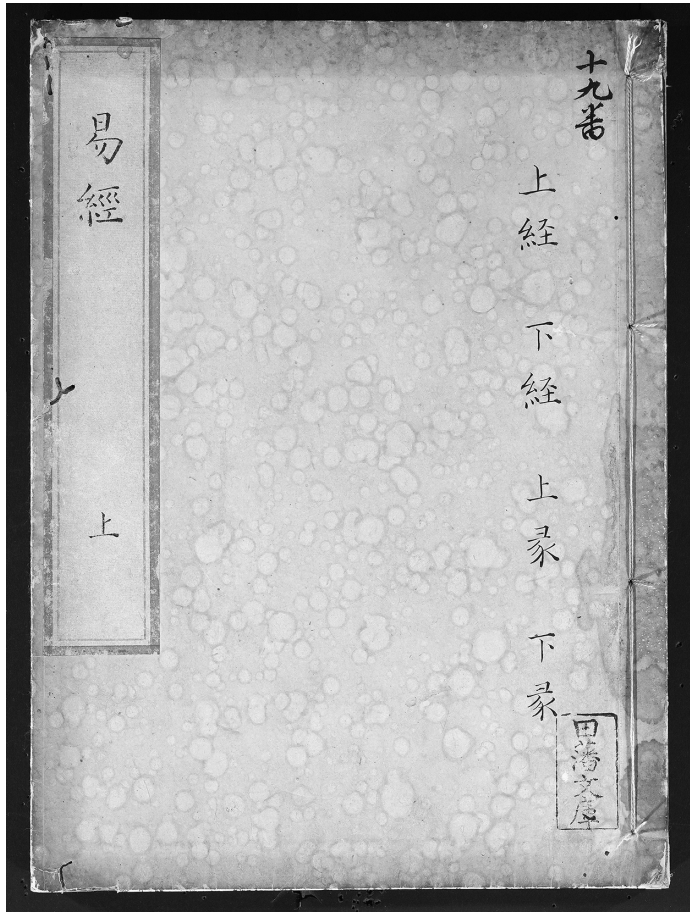 十九番
上経 下経 上彖 下彖
田藩文庫
易經 上